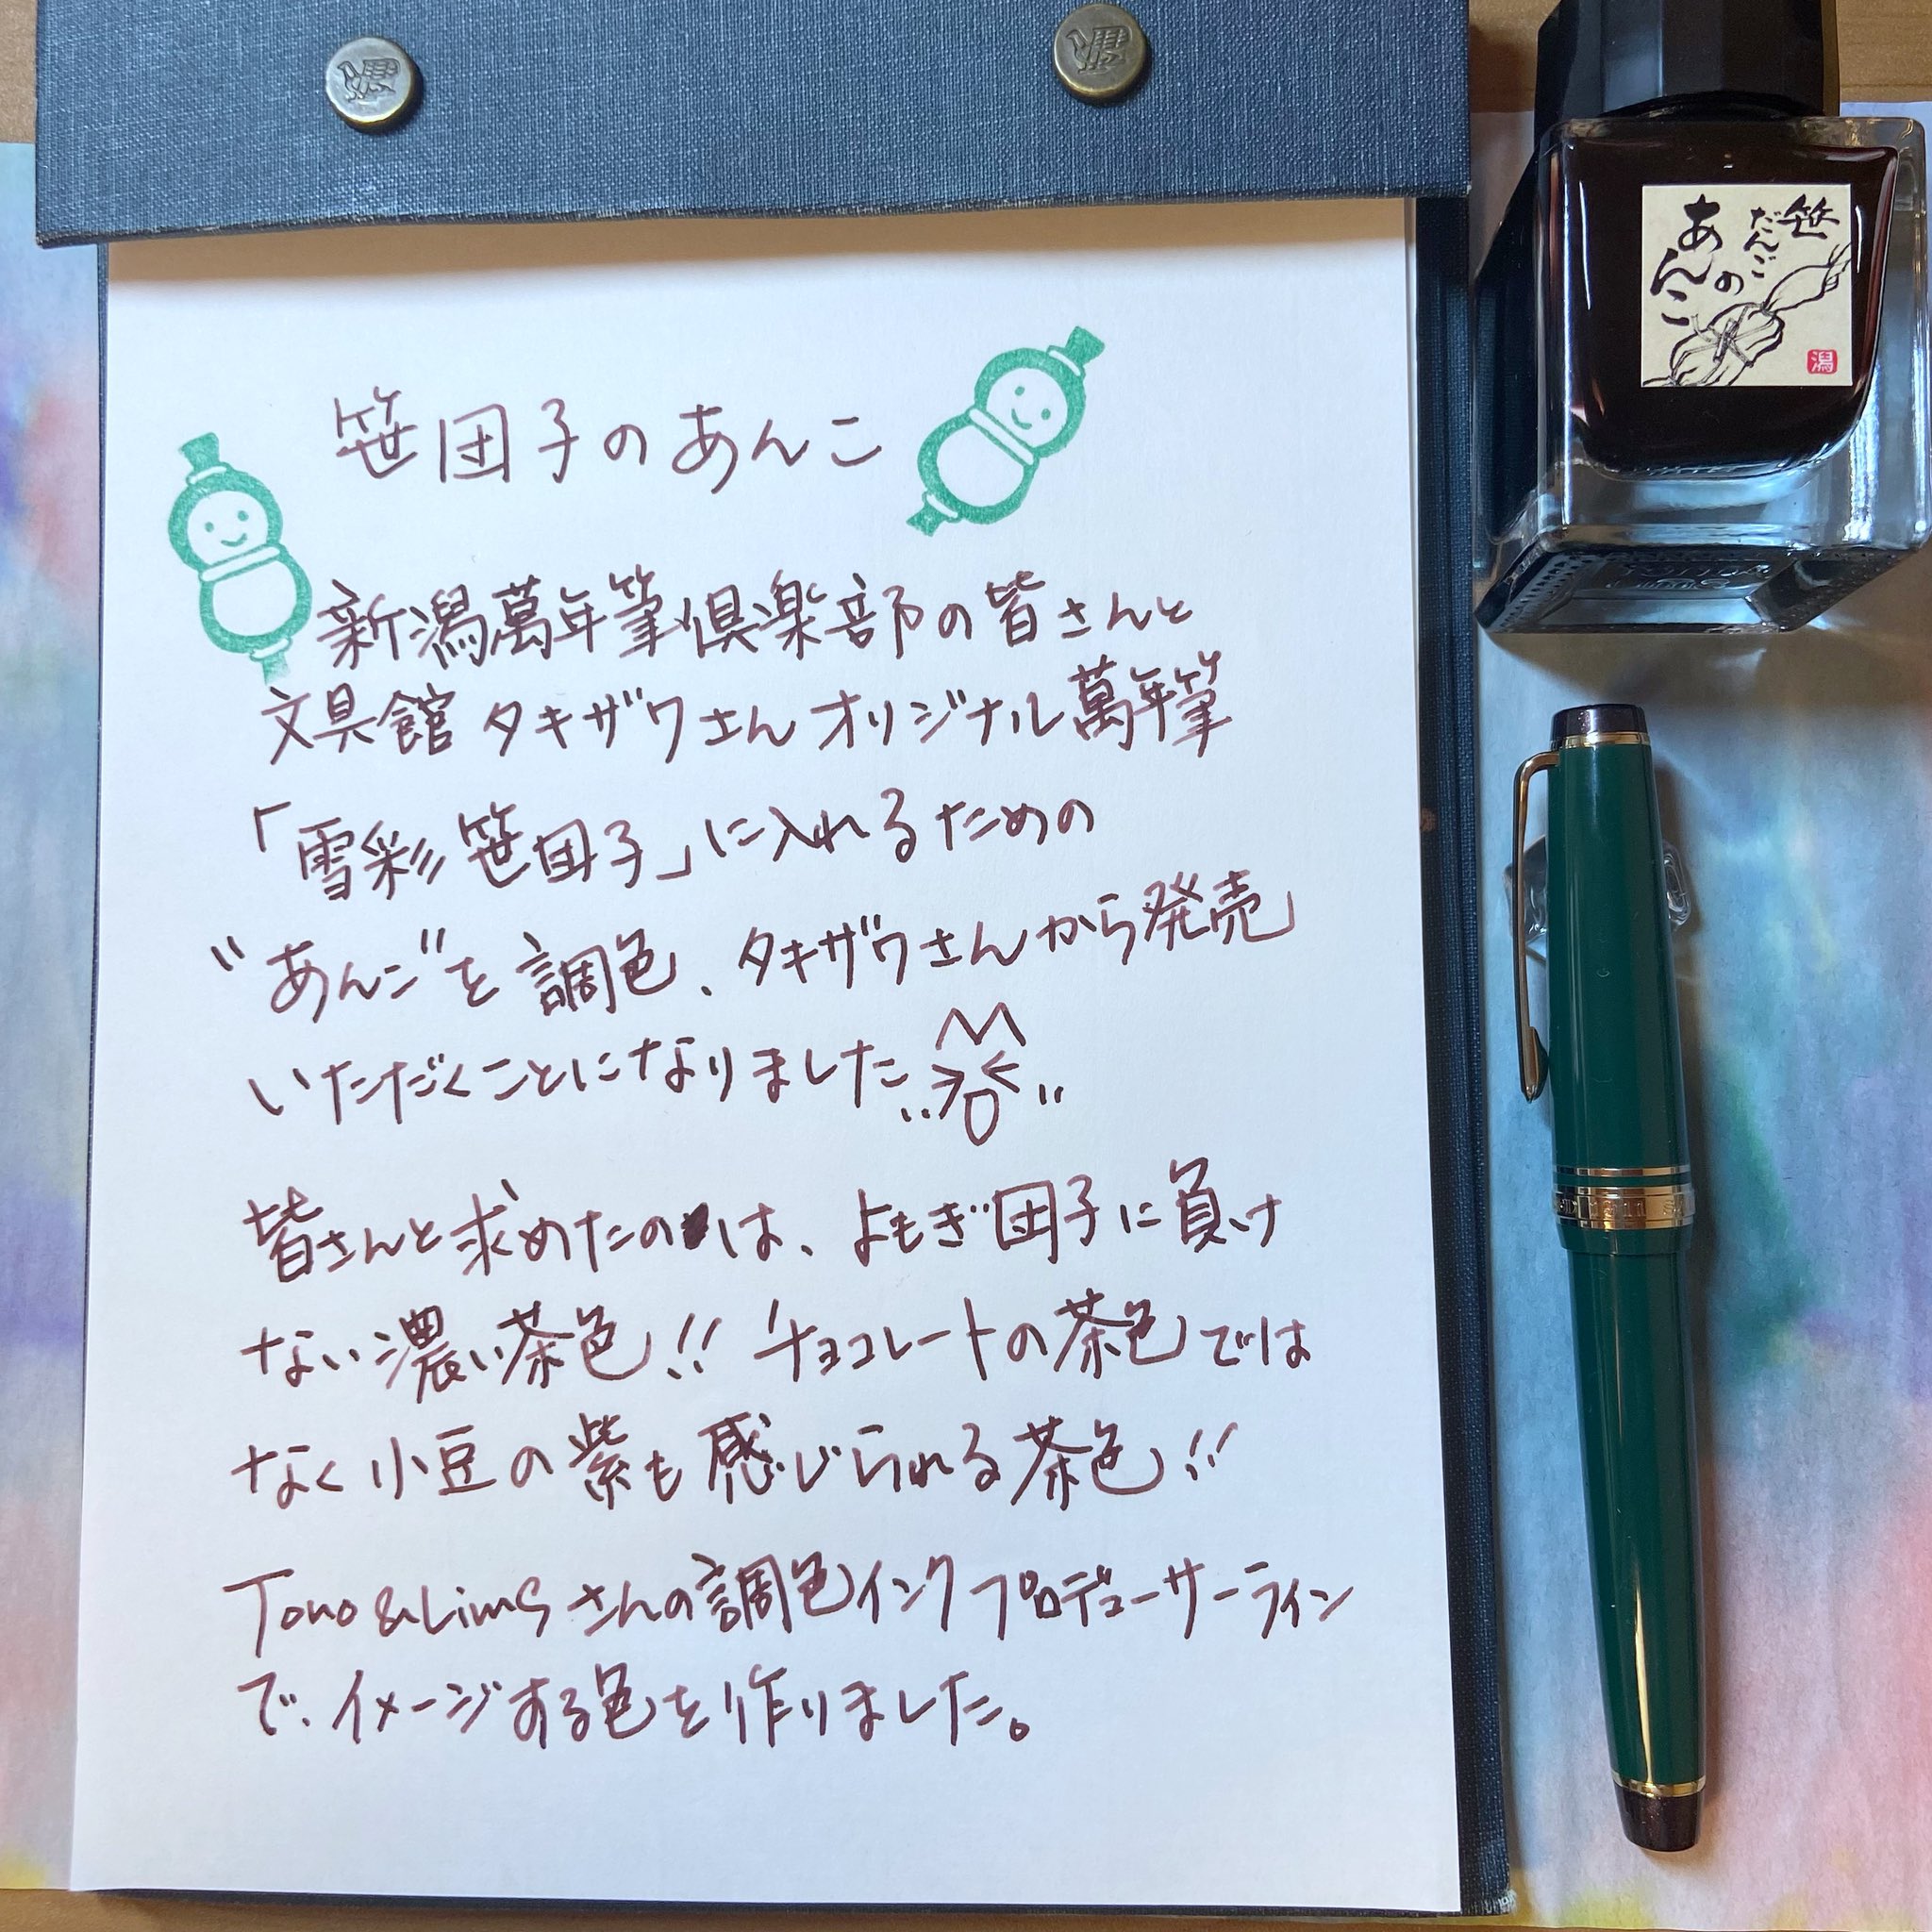 笹団子のあんこ
新潟萬年筆倶楽部の皆さんと
文具館タキザワさんオリジナル萬年筆
「雪彩 笹団子」に入れるための
“あんこ”を調色、タキザワさんから発売
いただくことになりました
皆さんと求めたのは、よもぎ団子に負け
ない濃い茶色!! チョコレートの茶色では
なく小豆の紫も感じられる茶色!!
Tono&Limsさんの調色インクプロデューサーライン
で、イメージする色を作りました。
笹
だんごの
あんこ
潟